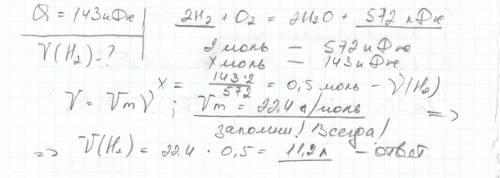 Q = 143 кДж
2H₂ + O₂ = 2H₂O + 572 кДж
V(H₂) - ?
2 моль — 572 кДж
x моль — 143 кДж
x = 143·2 / 572 = 0,5 моль - ν(H₂)
V = Vm ν ; Vm = 22.4 л/моль =>
запомни! Всегда!
=> V(H₂) = 22.4 · 0,5 = 11,2 л - ответ